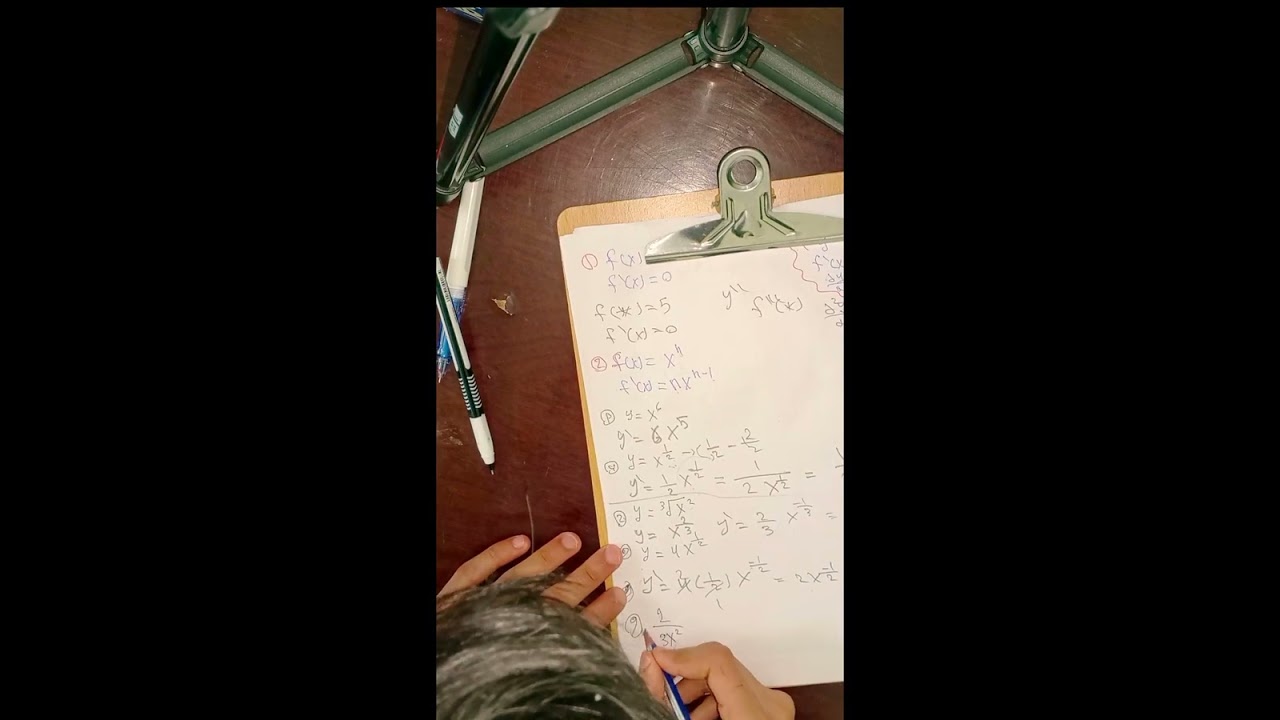 ① f(x)
f'(x)=0
f(x)=5
f'(x)=0
y'' f''(x)
f'(x)
② f(x)= xⁿ
f'(x)=nxⁿ⁻¹
y= x⁶
y'= 6 x⁵
y= x^(1/2) → (1/2 - 2/2
y'= 1/2 x^(-1/2) = 1/(2 x^(1/2)) =
② y= ³√x²
y= x^(2/3) y'= 2/3 x^(-1/3) =
y= 4x^(1/2)
y'= 4(1/2) x^(-1/2) = 2x^(-1/2)
2/(3x²)